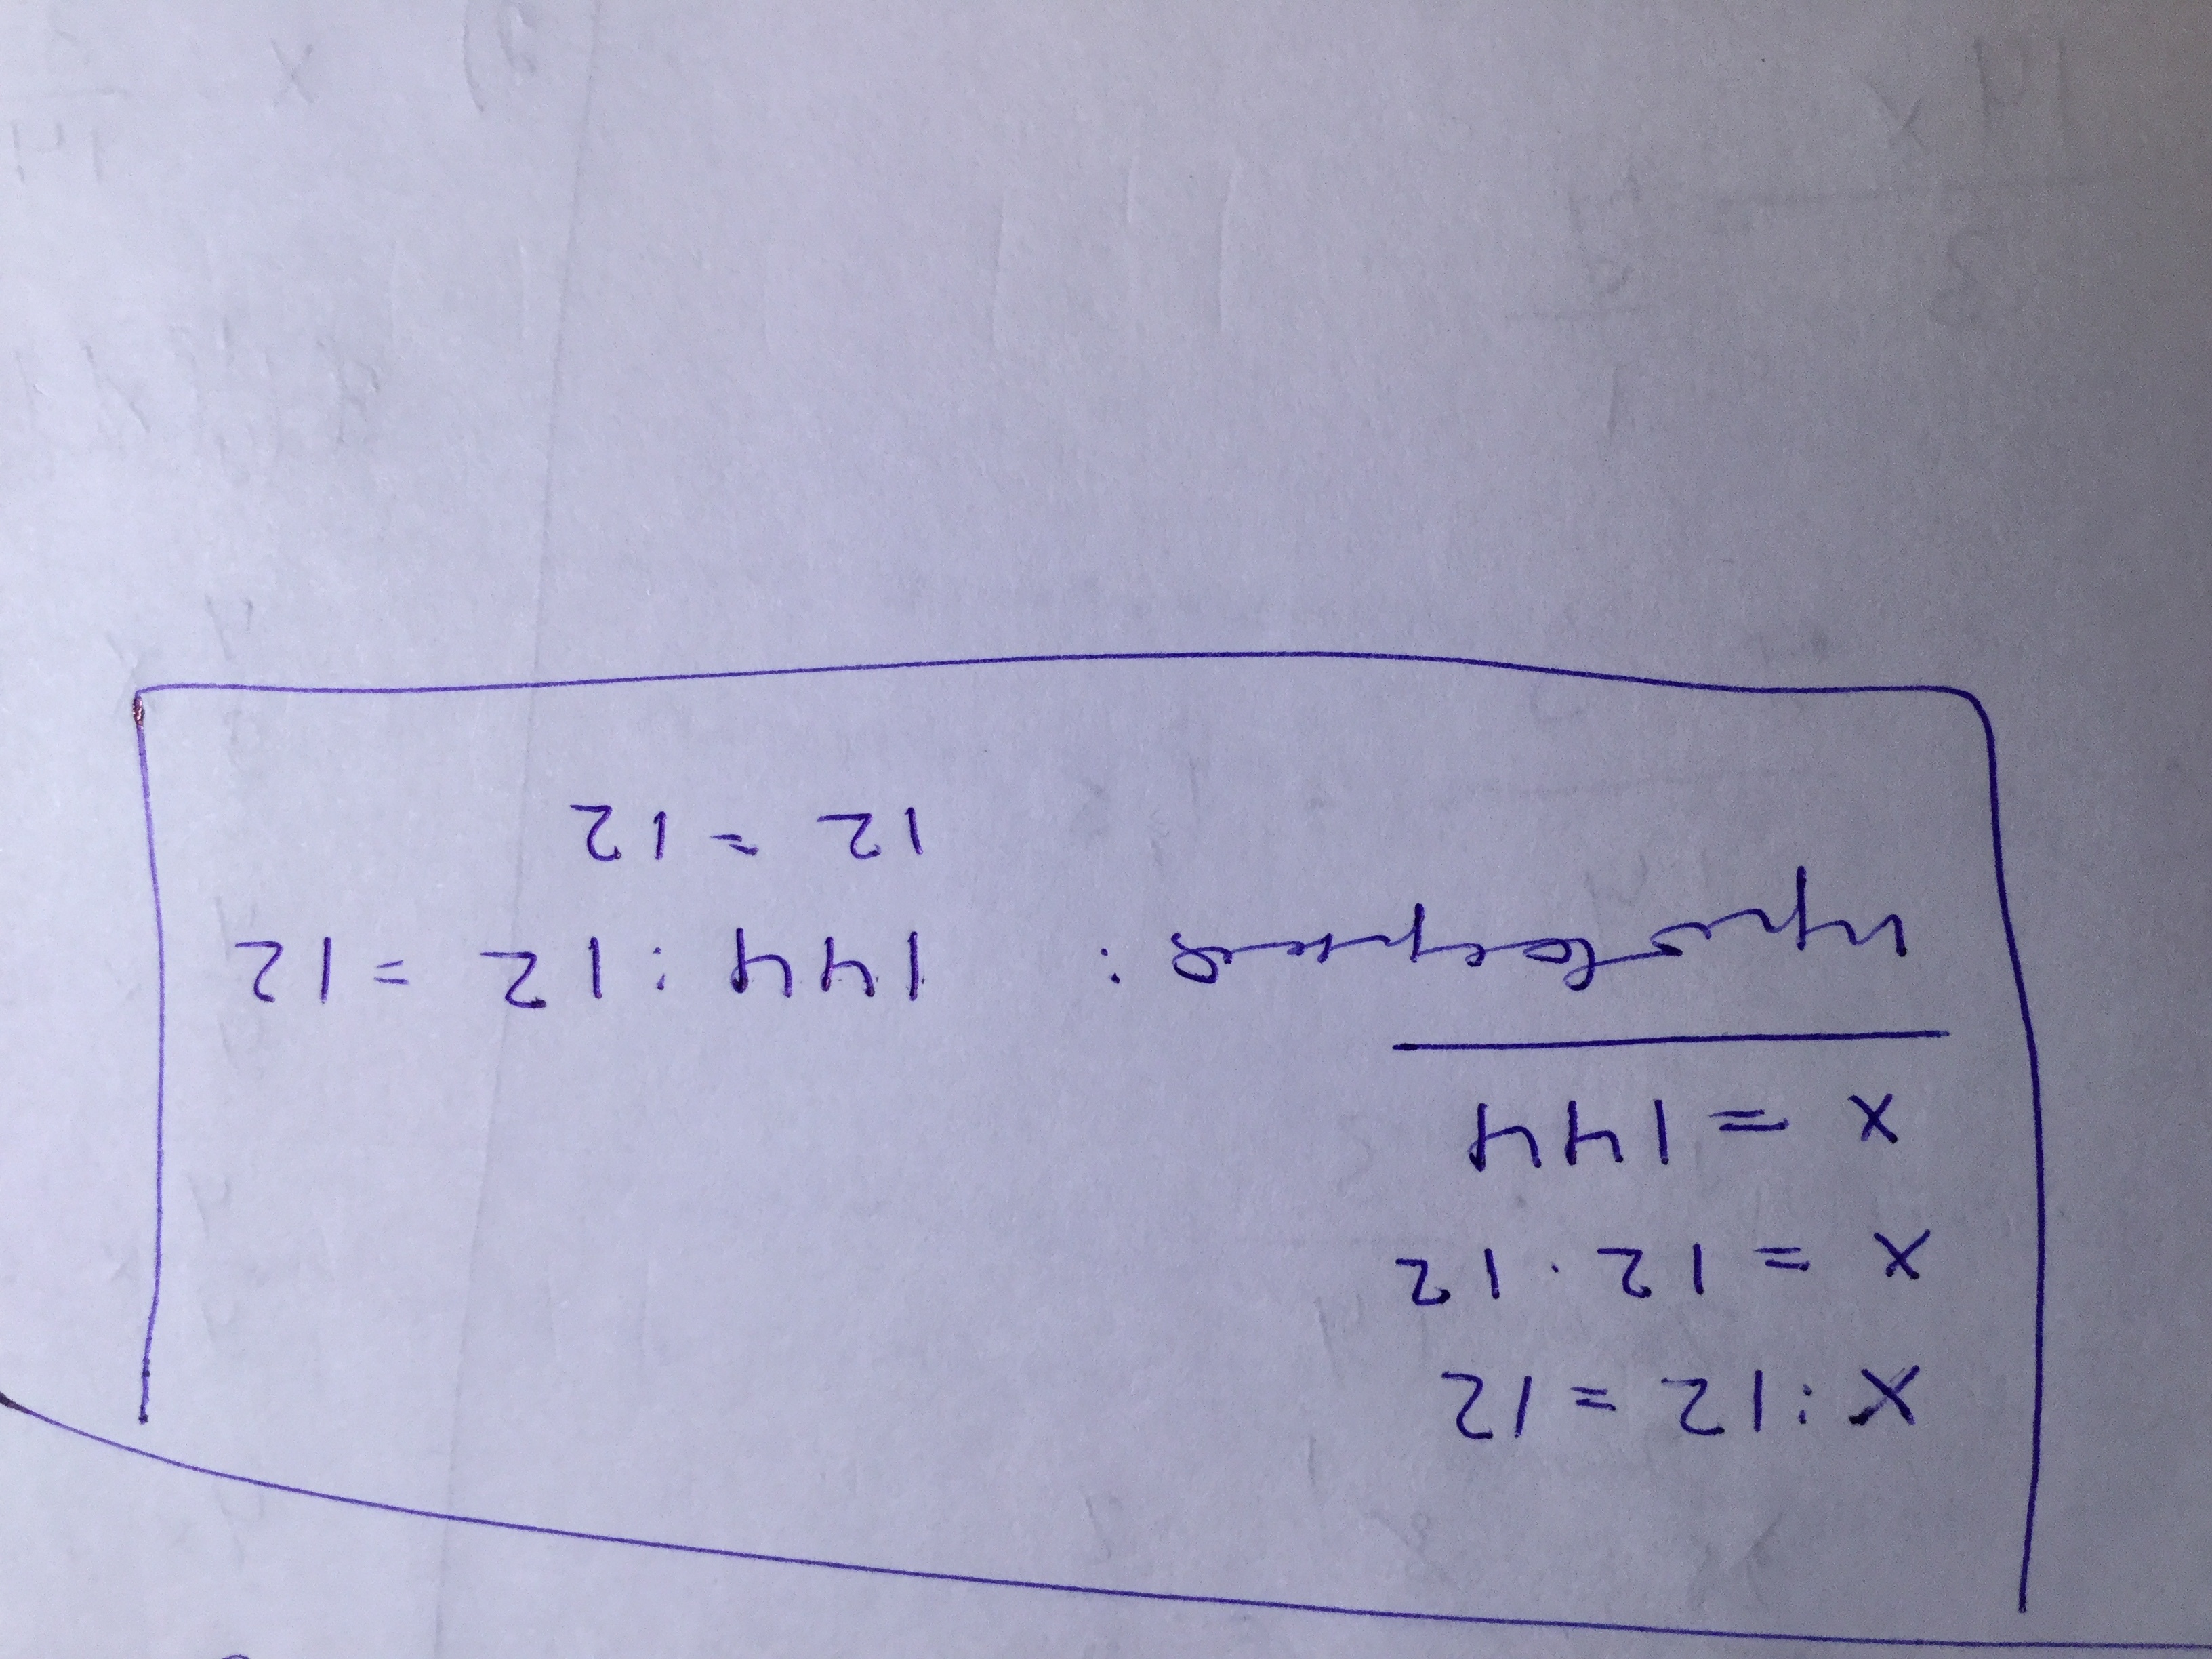 x : 12 = 12
x = 12 · 12
x = 144
проверка: 144 : 12 = 12
12 = 12